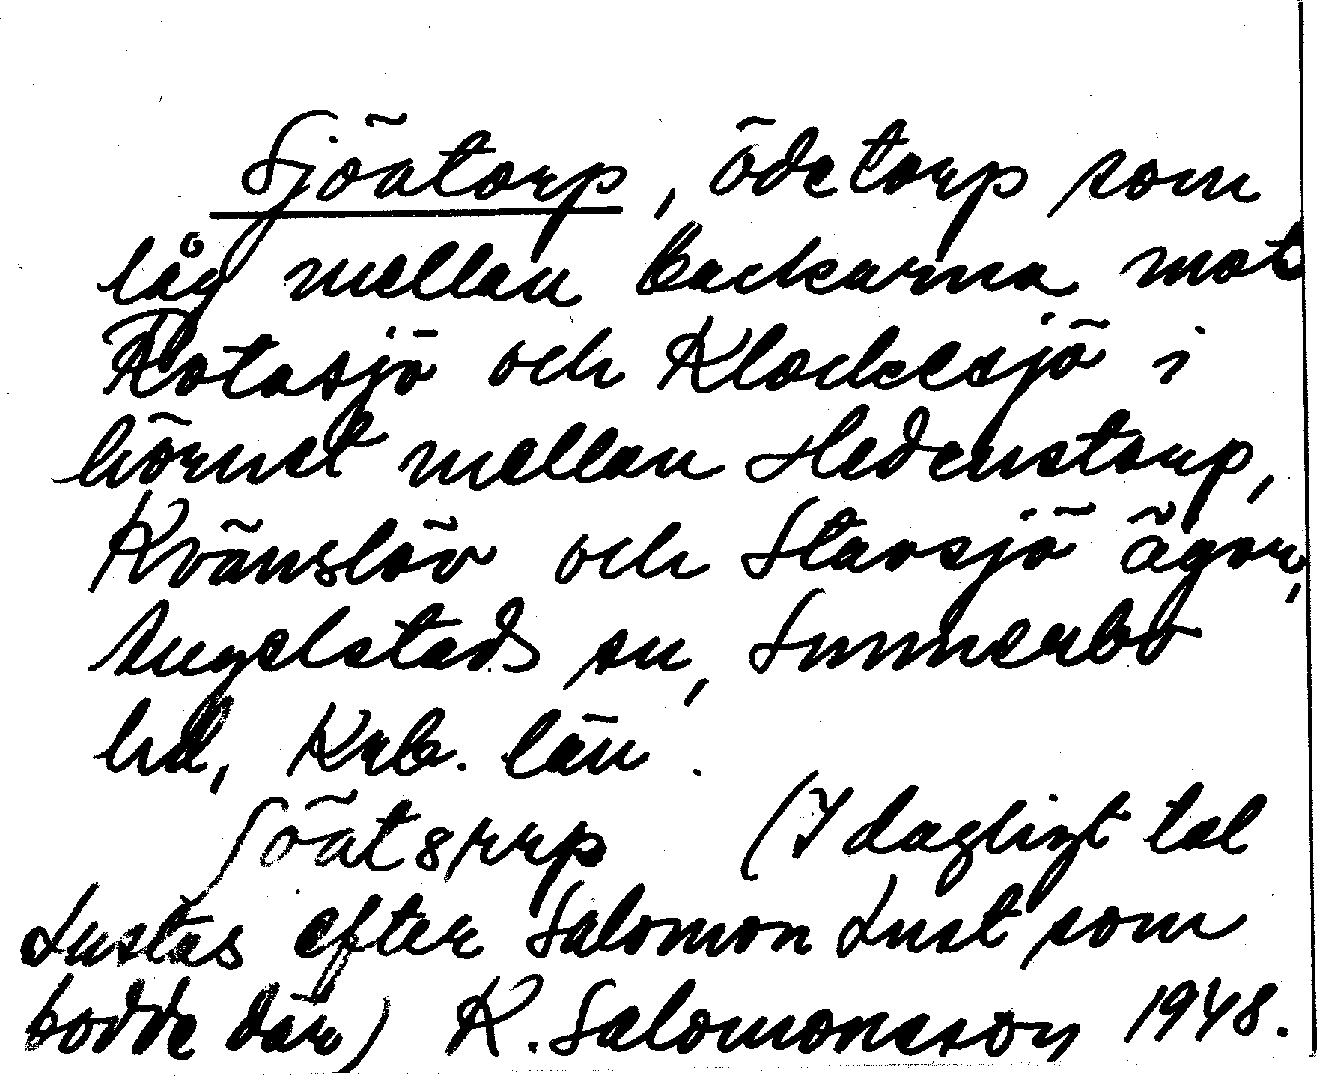 Sjöatorp, ödetorp som
låg mellan backarna mot
Kotasjö och Klockesjö i
hörnet mellan Hedenstorp,
Kvänslöv och Stavsjö ägor,
Angelstads sn, Sunnerbo
hd, Krb. län.
(I dagligt tal
Lustas efter Salomon Lust som
bodde där) K. Salomonsson 1948.